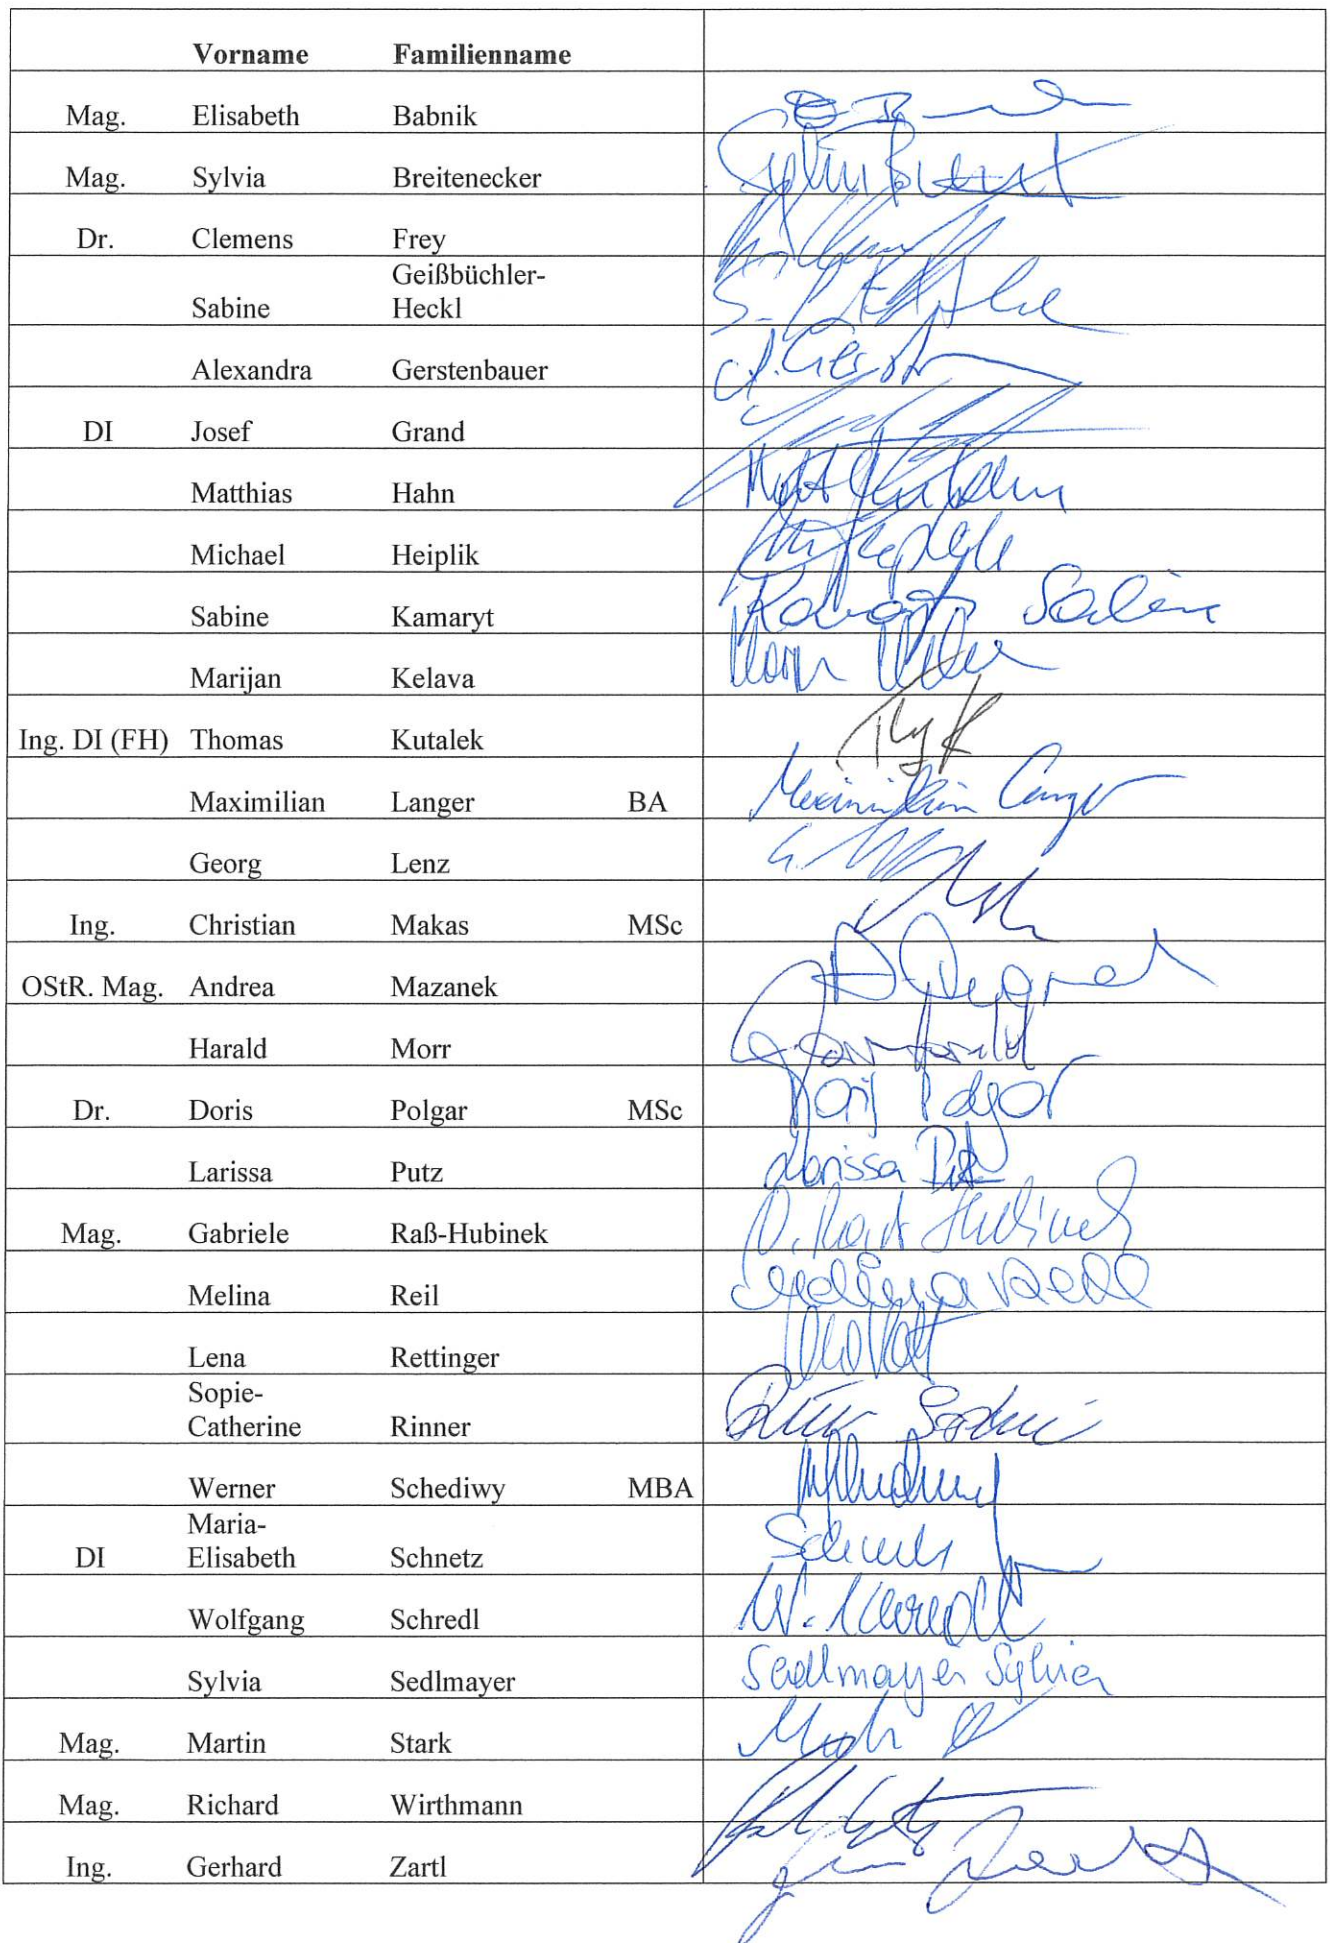 Vorname Familienname
Mag. Elisabeth Babnik
Mag. Sylvia Breitenecker
Dr. Clemens Frey
Geißbüchler-
Sabine Heckl
Alexandra Gerstenbauer
A. Gerst
DI Josef Grand
Matthias Hahn
Michael Heiplik
Sabine Kamaryt
Kamaryt Sabine
Marijan Kelava
Ing. DI (FH) Thomas Kutalek
Maximilian Langer BA
Maximilian Langer
Georg Lenz
Ing. Christian Makas MSc
OStR. Mag. Andrea Mazanek
Harald Morr
Dr. Doris Polgar MSc
Doris Polgar
Larissa Putz
Larissa Putz
Mag. Gabriele Raß-Hubinek
Melina Reil
Melina Reil
Lena Rettinger
Sopie-
Catherine Rinner
Werner Schediwy MBA
Maria-
DI Elisabeth Schnetz
Wolfgang Schredl
W. Schredl
Sylvia Sedlmayer
Sedlmayer Sylvia
Mag. Martin Stark
Mag. Richard Wirthmann
Ing. Gerhard Zartl